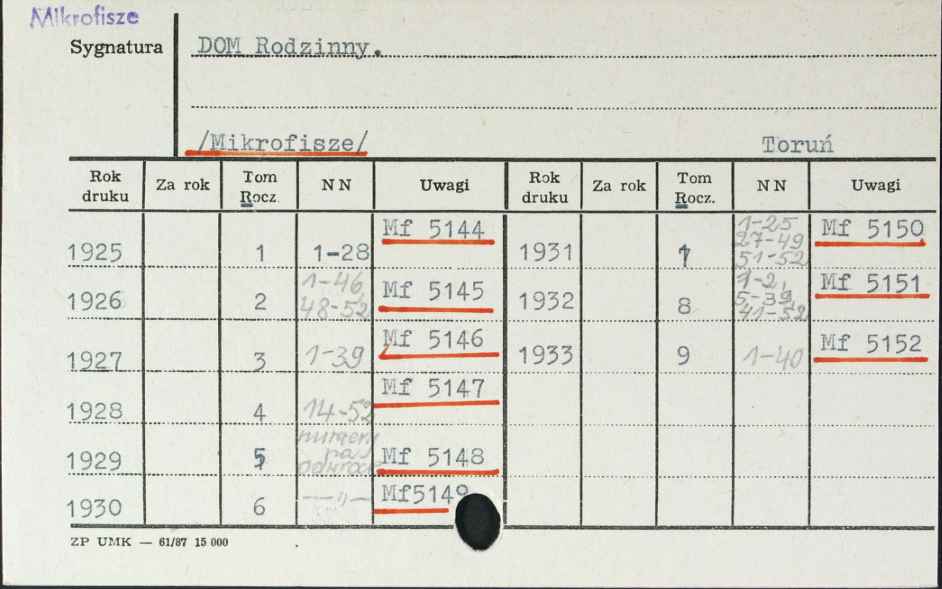 Mikrofisze
Sygnatura DOM Rodzinny.
/Mikrofisze/ Toruń
Rok druku Za rok Tom Rocz. NN Uwagi Rok druku Za rok Tom Rocz. NN Uwagi
1925 1 1-28 Mf 5144 1931 7 1-25 27-49 51-52 Mf 5150
1926 2 1-46, 48-52 Mf 5145 1932 8 1-2, 5-39, 41-52 Mf 5151
1927 3 1-39 Mf 5146 1933 9 1-40 Mf 5152
1928 4 14-52 Mf 5147
1929 5 numery na Mf 5148
1930 6 —"— Mf5149
ZP UMK — 61/87 15 000